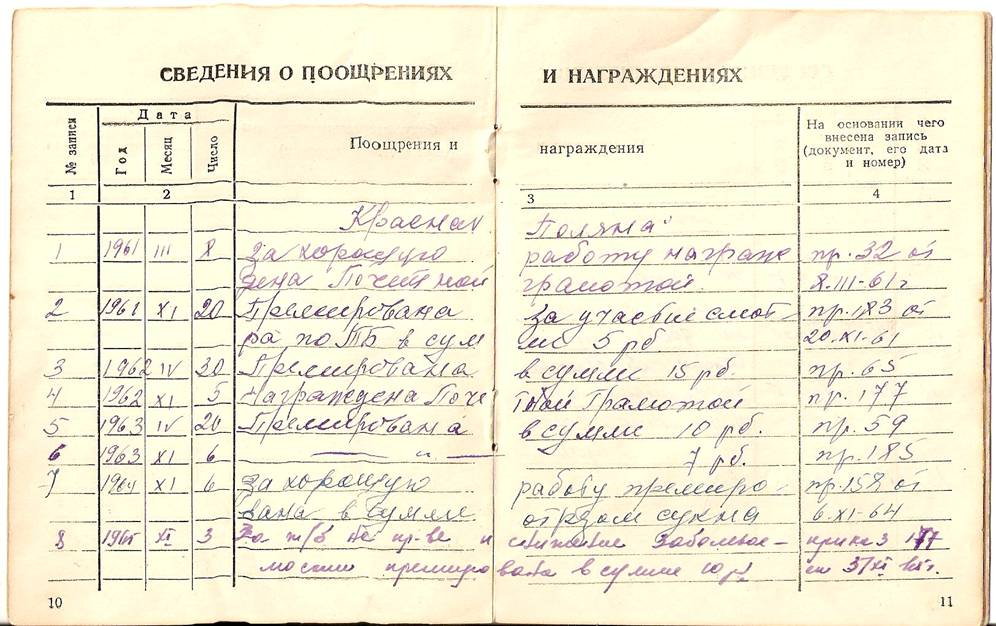 СВЕДЕНИЯ О ПООЩРЕНИЯХ И НАГРАЖДЕНИЯХ
№ записи
Дата
Год
Месяц
Число
Поощрения и награждения
На основании чего
внесена запись
(документ, его дата
и номер)
1 2 3 4
Красная Поляна"
1 1961 III 8 За хорошую работу награж пр. 32 от
дена Почетной грамотой. 8.III-61г
2 1961 XI 20 Премирована за участие смот- пр. 183 от
ра по ТБ в сум ме 5 рб. 20.XI-61
3 1962 IV 30 Премирована в сумме 15 рб. пр. 65
4 1962 XI 5 Награждена Поче тной Грамотой пр. 177
5 1963 IV 20 Премирована в сумме 10 рб. пр. 59
6 1963 XI 6 — „ — 7 рб. пр. 185
7 1964 XI 6 За хорошую работу премиро- пр. 158 от
вана в сумме отрезом сукна 6.XI-64
8 1965 XI 3 За т/б на пр-ве и снижение заболевае- приказ 177
мости премирована в сумме 10 р от 3/XI 65г.
10 11